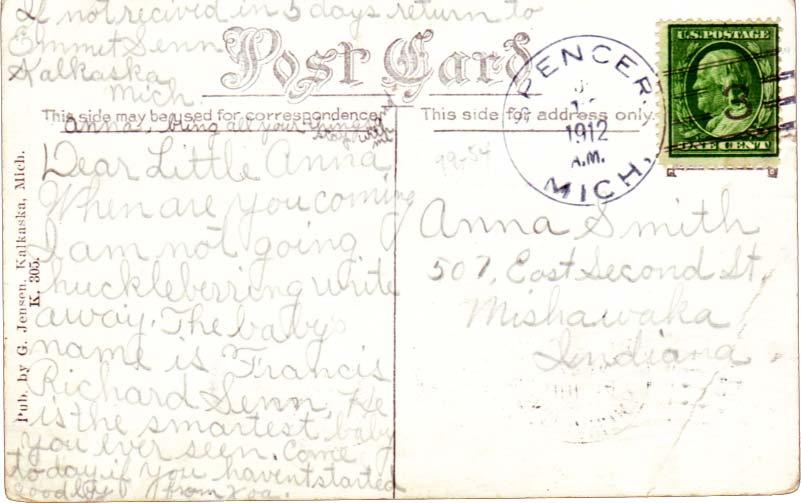 If not recived in 5 days return to
Emmet Senn
Kalkaska
Mich.
Post Card
This side may be used for correspondence
This side for address only.
Anna, bring all your things and
stay with
me
Dear Little Anna
When are you coming
I am not going
huckleberring write
away. The babys
name is Francis
Richard Senn. He
is the smartest baby
you ever seen. Come
to day if you havent started
Goodby from Zoa.
Pub. by G. Jensen, Kalkaska, Mich.
K. 305.
SPENCER.
1912
A.M.
MICH.
U.S. POSTAGE
3
ONE CENT
99-54
Anna Smith
507, East Second St,
Mishawaka
Indiana.